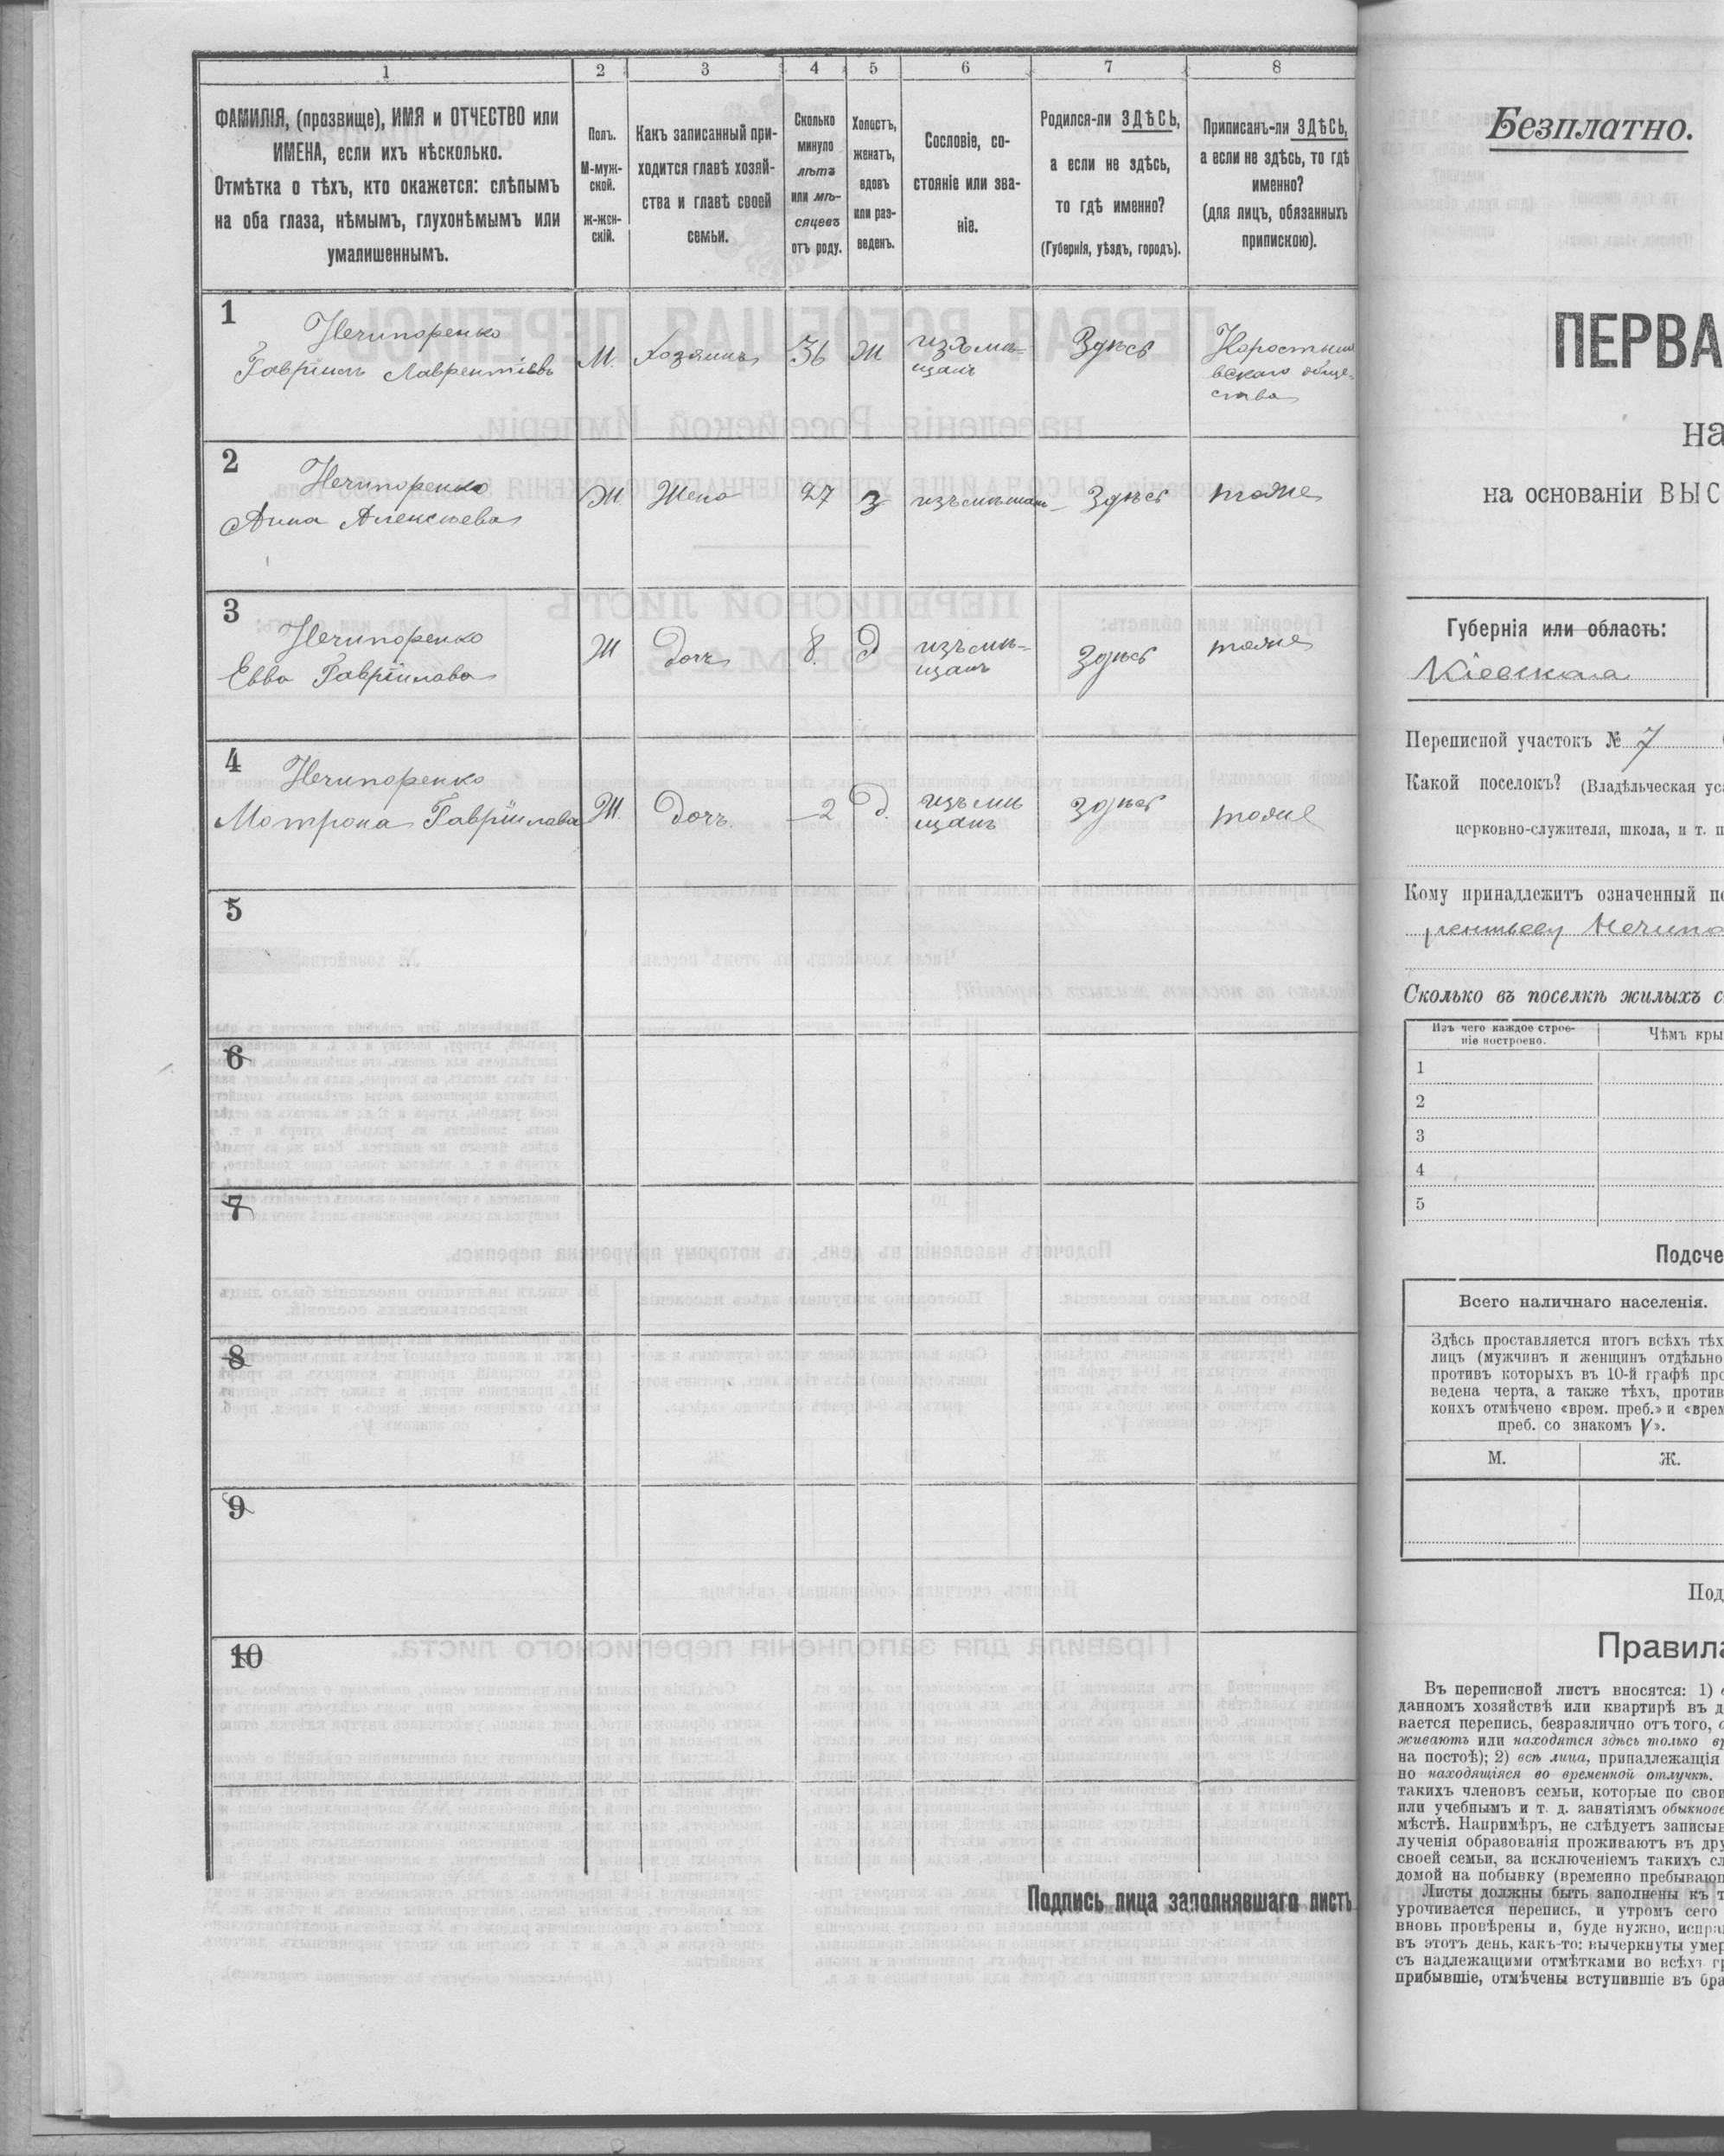 1 2 3 4 5 6 7 8
ФАМИЛІЯ, (прозвище), ИМЯ и ОТЧЕСТВО или
ИМЕНА, если ихъ нѣсколько.
Отмѣтка о тѣхъ, кто окажется: слѣпымъ
на оба глаза, нѣмымъ, глухонѣмымъ или
умалишеннымъ.
Полъ.
М-муж-
ской.
ж-жен-
скій.
Какъ записанный при-
ходится главѣ хозяй-
ства и главѣ своей
семьи.
Сколько
минуло
лѣтъ
или мѣ-
сяцевъ
отъ роду.
Холостъ,
женатъ,
вдовъ
или раз-
веденъ.
Сословіе, со-
стояніе или зва-
ніе.
Родился-ли ЗДѢСЬ,
а если не здѣсь,
то гдѣ именно?
(Губернія, уѣздъ, городъ).
Приписанъ-ли ЗДѢСЬ,
а если не здѣсь, то гдѣ
именно?
(для лицъ, обязанныхъ
припискою).
1
Нечипоренко
Гавріилъ Лаврентіевъ
М.
Хозяинъ
36
Ж
изъ мѣ-
щанъ
Здѣсь
Коростыше
вскаго обще-
ства
2
Нечипоренко
Анна Алексѣева
Ж.
Жена
27
З
изъ мѣщанъ
Здѣсь
тоже
3
Нечипоренко
Евва Гавріилова
Ж
Дочь
8.
Д
изъ мѣ-
щанъ
Здѣсь
тоже
4
Нечипоренко
Мотрона Гавріилава
Ж.
Дочь.
2
Д.
изъ мѣ
щанъ
Здѣсь
тоже
5
6
7
8
9
10
Подпись лица заполнявшаго листъ
Безплатно.
ПЕРВА
на
на основаніи ВЫС
Губернія или область:
Кіевская
Переписной участокъ № 7
Какой поселокъ? (Владѣльческая уса
церковно-служителя, школа, и т. п
Кому принадлежитъ означенный по
рентьеву Нечипо
Сколько въ поселкѣ жилыхъ с
Изъ чего каждое строе-
ніе построено.
Чѣмъ кры
1
2
3
4
5
Подсче
Всего наличнаго населенія.
Здѣсь проставляется итогъ всѣхъ тѣх
лицъ (мужчинъ и женщинъ отдѣльно
противъ которыхъ въ 10-й графѣ про
ведена черта, а также тѣхъ, против
коихъ отмѣчено «врем. преб.» и «врем
преб. со знакомъ V».
М. Ж.
Под
Правила
Въ переписной листъ вносятся: 1) в
данномъ хозяйствѣ или квартирѣ въ д
вается перепись, безразлично отъ того, о
живаютъ или находятся здѣсь только вр
на постоѣ); 2) всѣ лица, принадлежащія
но находящіяся во временной отлучкѣ.
такихъ членовъ семьи, которые по свои
или учебнымъ и т. д. занятіямъ обыкнове
мѣстѣ. Напримѣръ, не слѣдуетъ записыв
лученія образованія проживаютъ въ дру
своей семьи, за исключеніемъ такихъ сл
домой на побывку (временно пребывающ
Листы должны быть заполнены къ т
урочивается перепись, и утромъ сего
вновь провѣрены и, буде нужно, испра
въ этотъ день, какъ-то: вычеркнуты умер
съ надлежащими отмѣтками во всѣхъ гр
прибывшіе, отмѣчены вступившіе въ бра